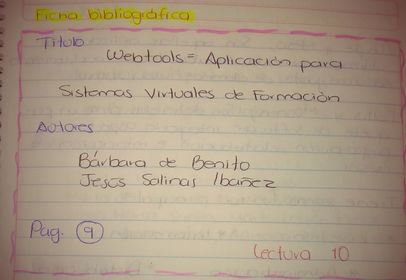 Ficha bibliográfica
Titulo
Webtools= Aplicación para
Sistemas Virtuales de Formación
Autores
Bárbara de Benito
Jesús Salinas Ibañez
Pag. 9
Lectura 10